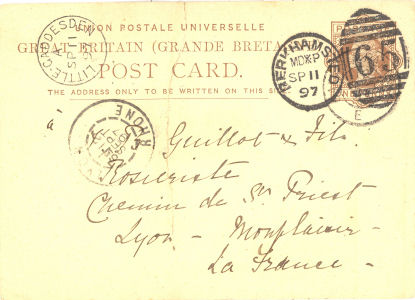 UNION POSTALE UNIVERSELLE
GREAT BRITAIN (GRANDE BRETA
POST CARD.
THE ADDRESS ONLY TO BE WRITTEN ON THIS S
LITTLE-GADDESDEN
SP 11
97
BERKHAMSTED
MDXP
SP 11
97
65
E
RHONE
Guillot & Fils
Rosieriste
Chemin de St Priest
Lyon - Monplaisir -
La France -